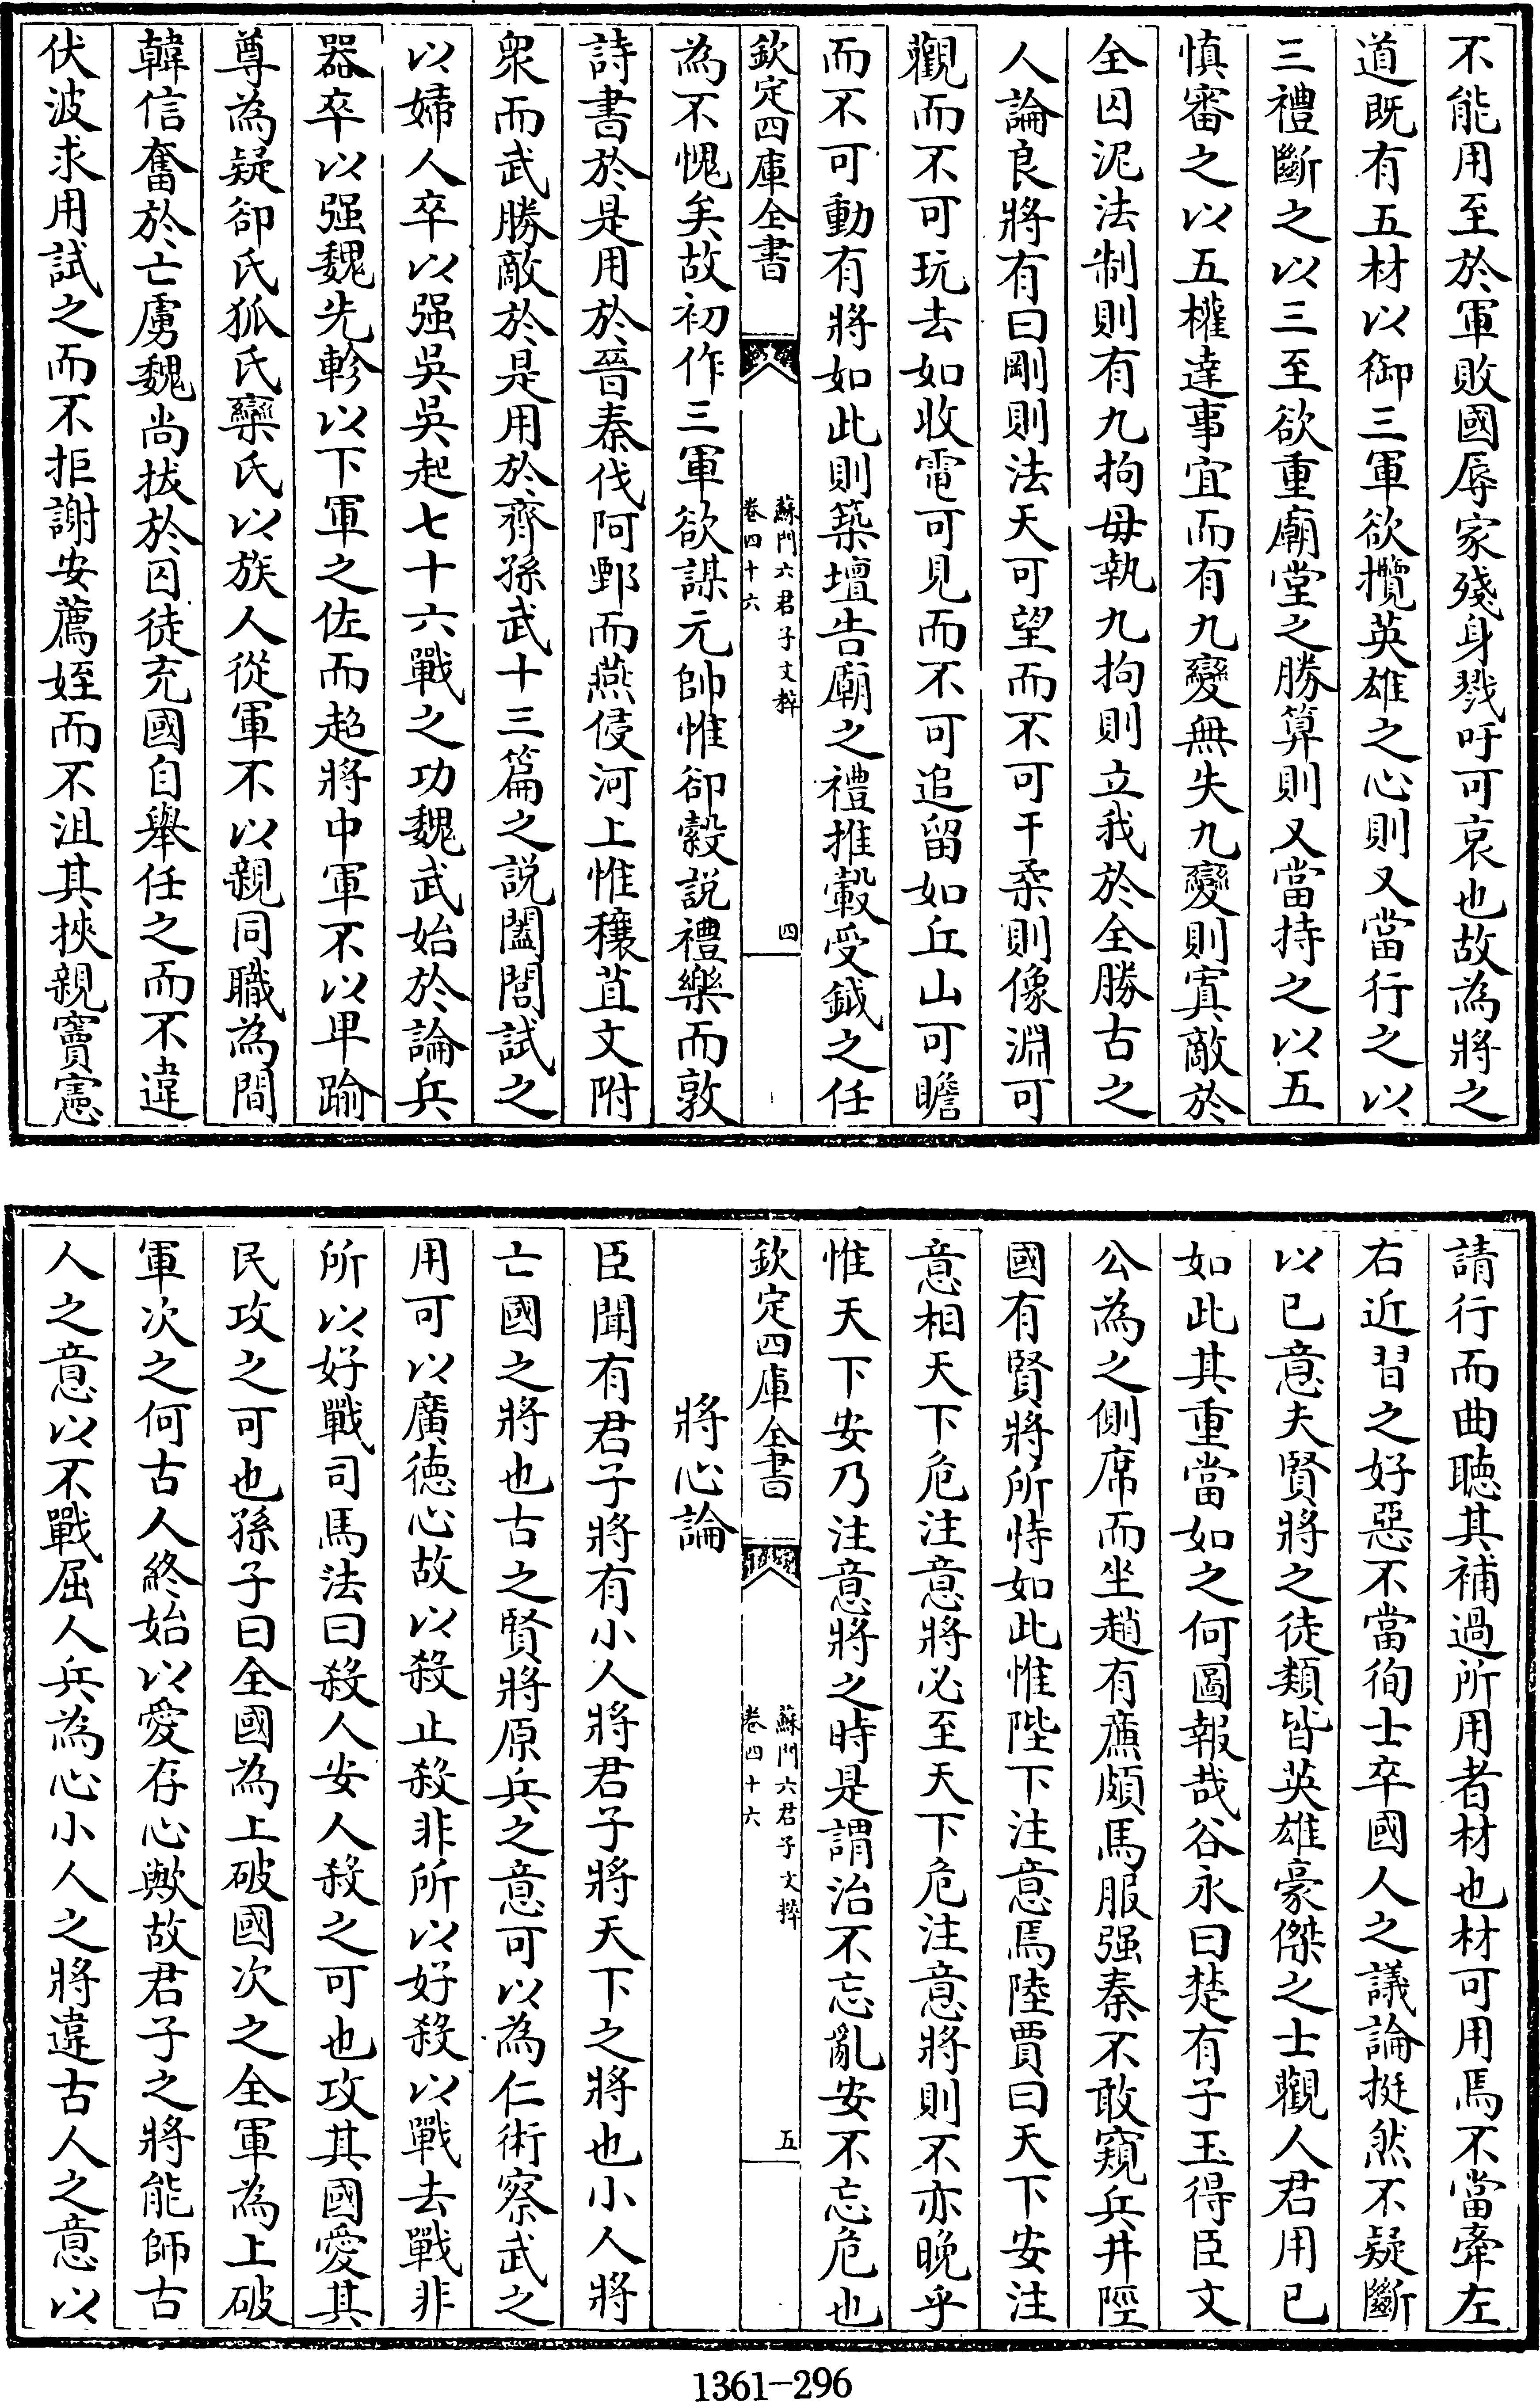 不能用至於軍敗國辱家殘身戮吁可哀也故為將之
道既有五材以御三軍欲攬英雄之心則又當行之以
三禮斷之以三至欲重廟堂之勝算則又當持之以五
慎審之以五權達事宜而有九變無失九變則寘敵於
全囚泥法制則有九拘毋執九拘則立我於全勝古之
人論良將有曰剛則法天可望而不可干柔則像淵可
觀而不可玩去如收電可見而不可追留如丘山可瞻
而不可動有將如此則築壇告廟之禮推轂受鉞之任
欽定四庫全書
蘇門六君子文粹
卷四十六
四
為不愧矣故初作三軍欲謀元帥惟郤縠說禮樂而敦
詩書於是用於晉秦伐阿鄄而燕侵河上惟穰苴文附
衆而武勝敵於是用於齊孫武十三篇之說闔閭試之
以婦人卒以强吳吳起七十六戰之功魏武始於論兵
器卒以强魏先軫以下軍之佐而超將中軍不以卑踰
尊為疑郤氏狐氏欒氏以族人從軍不以親同職為間
韓信奮於亡虜魏尚拔於囚徒充國自舉任之而不違
伏波求用試之而不拒謝安薦姪而不沮其挾親竇憲
請行而曲聽其補過所用者材也材可用焉不當牽左
右近習之好惡不當徇士卒國人之議論挺然不疑斷
以已意夫賢將之徒類皆英雄豪傑之士觀人君用已
如此其重當如之何圖報哉谷永曰楚有子玉得臣文
公為之側席而坐趙有廉頗馬服强秦不敢窺兵井陘
國有賢將所恃如此惟陛下注意焉陸賈曰天下安注
意相天下危注意將必至天下危注意將則不亦晚乎
惟天下安乃注意將之時是謂治不忘亂安不忘危也
欽定四庫全書
蘇門六君子文粹
卷四十六
五
將心論
臣聞有君子將有小人將君子將天下之將也小人將
亡國之將也古之賢將原兵之意可以為仁術察武之
用可以廣德心故以殺止殺非所以好殺以戰去戰非
所以好戰司馬法曰殺人安人殺之可也攻其國愛其
民攻之可也孫子曰全國為上破國次之全軍為上破
軍次之何古人終始以愛存心歟故君子之將能師古
人之意以不戰屈人兵為心小人之將違古人之意以
1361-296